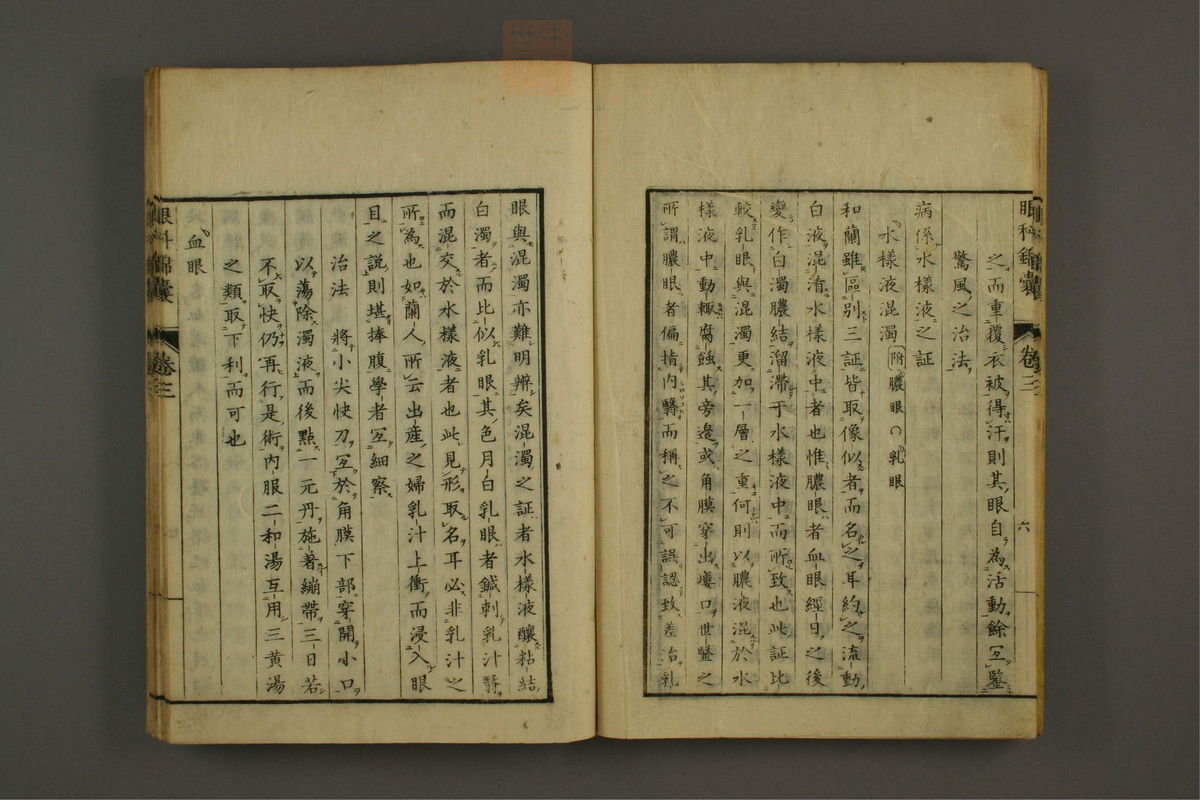 眼科錦囊 卷三 六
之而重覆衣被得汗則其眼自為活動餘宜鑒
驚風之治法
病係水樣液之証
水樣液混濁 附 膿眼○乳眼
和蘭雖區別三証皆取像似者而名之耳約之流動
白液混淆水樣液中者也惟膿眼者血眼經日之後
變作白濁膿結溜滯于水樣液中而所致也此証比
較乳眼與混濁更加一層之重何則以膿液混於水
樣液中動輙腐蝕其旁邊或角膜穿出瘻口世醫之
所謂膿眼者偏指內醫而稱之不可誤認致差治乳
眼與混濁亦難明辨矣混濁之証者水樣液釀粘結
白濁者而比似乳眼其色月白乳眼者鍼刺乳汁醫
而混交於水樣液者也此見形取名耳必非乳汁之
所為也如蘭人所云出產之婦乳汁上衝而浸入眼
目之說則堪捧腹學者宜細察
治法 將小尖快刀宜於角膜下部穿開小口
以蕩除濁液而後點一元丹施著繃帶三日若
不取快仍再行是術內服二和湯互用三黃湯
之類取下利而可也
血眼
眼科錦囊 卷三